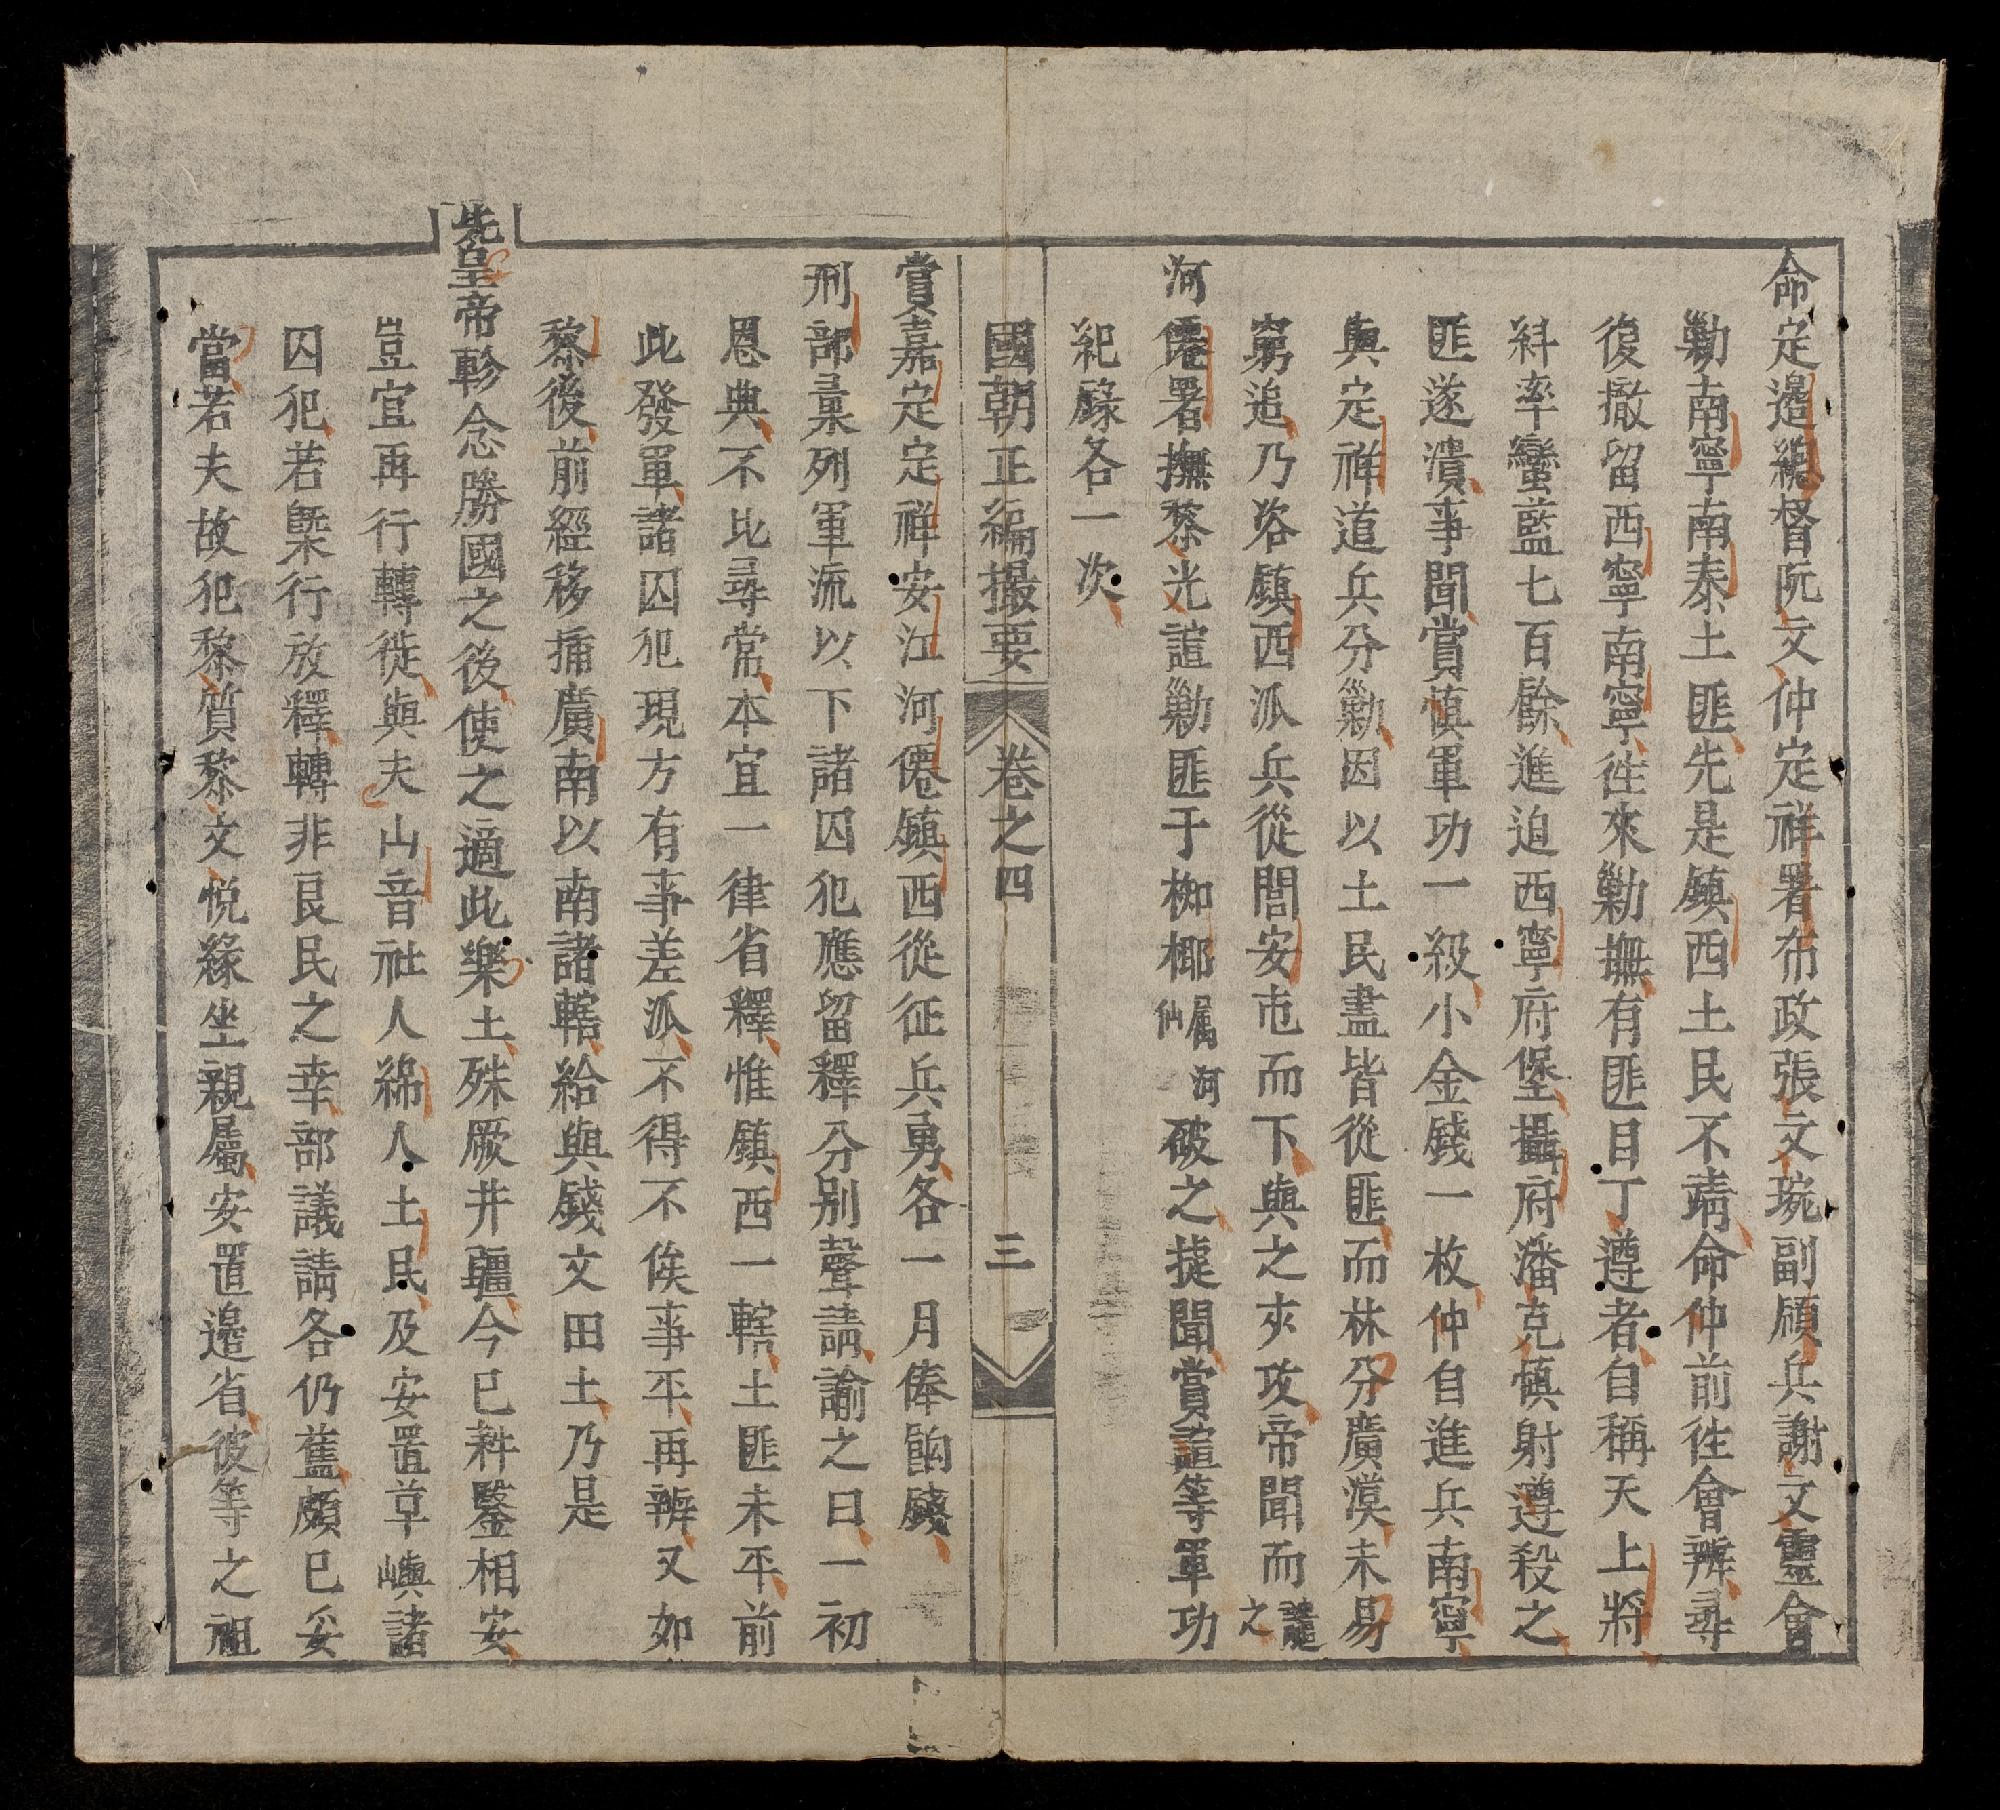 命定邉總督阮文仲定祥署布政張文琬副領兵謝文靈會
勦南寧南泰土匪先是鎮西土民不靖命仲前徃會辨尋
復撤留西寧南寧徃來勦撫有匪目丁遵者自稱天上將
糾率蠻藍七百餘進迫西寧府堡攝府潘克慎射遵殺之
匪遂潰事聞賞慎軍功一級小金錢一枚仲自進兵南寧
與定祥道兵分勦因以土民盡皆從匪而林分廣漠未易
窮追乃咨鎮西派兵從閭安屯而下與之夾攻帝聞而
河僊署撫黎光諠勦匪于枷椰屬河仙破之㨗聞賞諠等軍功
紀錄各一次
國朝正編撮要 卷之四 三
賞嘉定定祥安江河僊鎮西從征兵勇各一月俸餉錢
刑部彙列軍流以下諸囚犯應留釋分別聲請諭之曰一初
恩典不比尋常本宜一律省釋惟鎮西一轄土匪未平前
此發軍諸囚犯現方有事差派不得不俟事平再辨又如
黎後前經移揷廣南以南諸轄給與錢文田土乃是
先皇帝軫念勝國之後使之適此樂土殊厥井疆今已耕鑿相安
豈宜再行轉徙與夫山音社人綿人土民及安置草嶼諸
囚犯若槩行放釋轉非良民之幸部議請各仍舊頗已妥
當若夫故犯黎質黎文悅緣坐親屬安置邉省彼等之祖